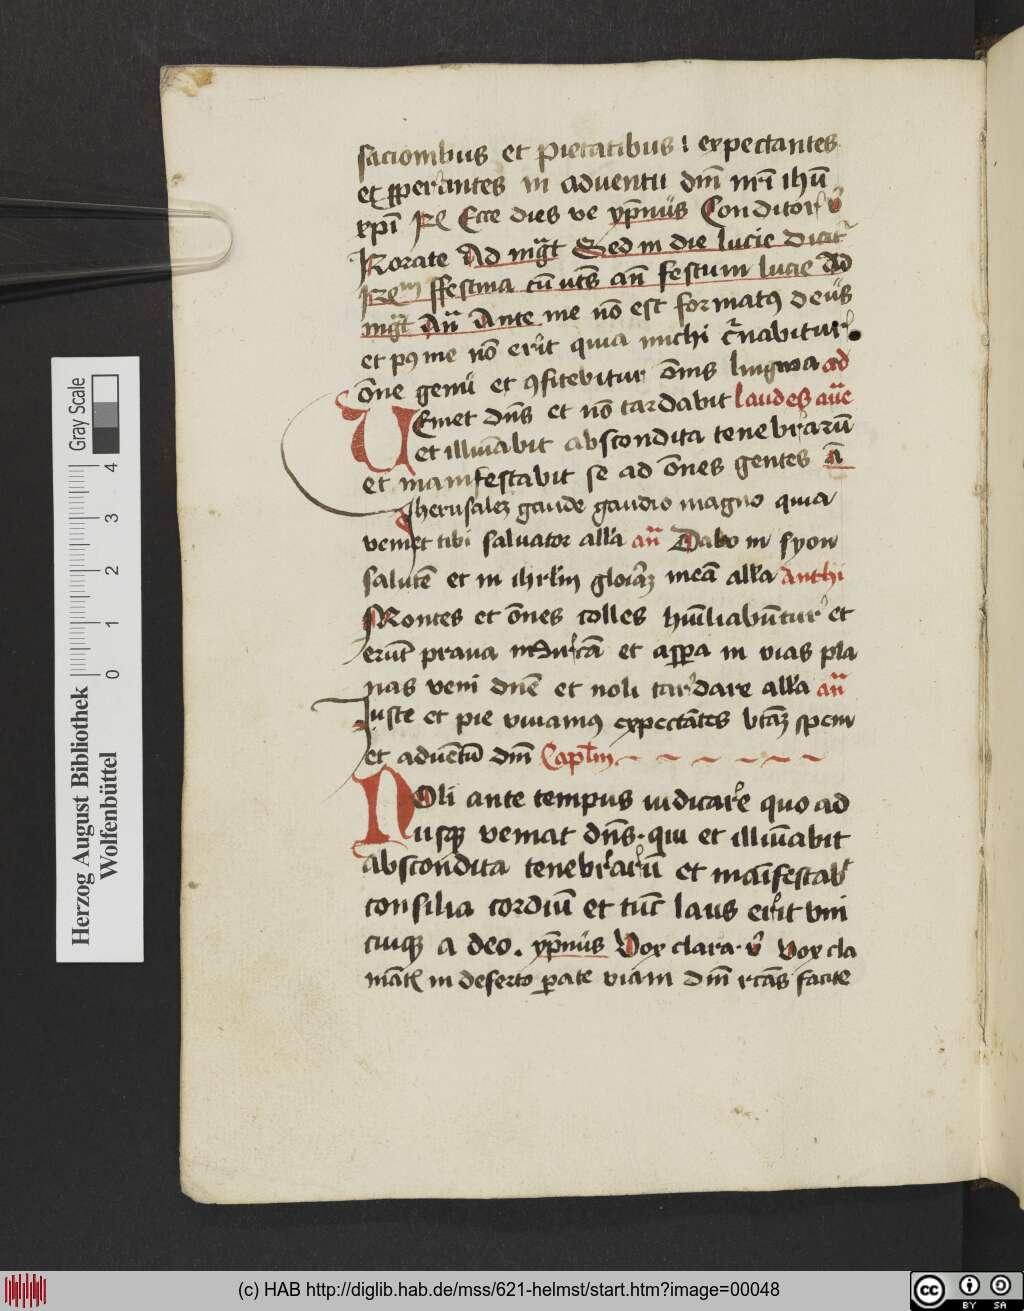 sacionibus et pietatibus expectantes
et sperantes in adventu dm̄ nrī ihū
xpī R Ecce dies ve yp̄nus Conditor v̄
Rorate Ad mg̅t Sed in die lucie dicit᷑
R̄m ffestina cū ut̄s an̄ festum lucie Ad
mg̅t An̄ Ante me nō est formatꝰ deus
et pꝰ me nō erit quia michi c̄nabitur
ōne genu et ꝯfitebitur ōnis lingwa ad
VEniet dn̄s et nō tardabit laudes an̄e
et illuīabit abscondita tenebrarū
et manifestabit se ad ōnes gentes ā
Jherusalēz gaude gaudio magno quia
veniet tibi salvator all'a an̄ Dabo in syon
salutē et in ihrl̄m gloiāz meā all'a Anthi
Montes et ōnes colles hūiliabūtur et
erūt prava in dir̄cā et asꝑa in vias pla
nas veni dn̄e et noli tardare all'a an̄
Juste et pie vivamꝰ expectātes btāz spem
et advētū dm̄ Caplm̄
NOli ante tempus iudicare quo ad
usqꝫ veniat dn̄s · qui et illuīabit
abscondita tenebrarū et māifestab̄t
consilia cordiū et tūc laus erit uni
cuiqꝫ a deo . yp̄nus Vox clara · v̄ Vox cla
māt̄ in deserto ꝑate viam dm̄ rcās facite
Herzog August Bibliothek
Wolfenbüttel
Gray Scale
0 1 2 3 4
(c) HAB http://diglib.hab.de/mss/621-helmst/start.htm?image=00048
cc BY SA